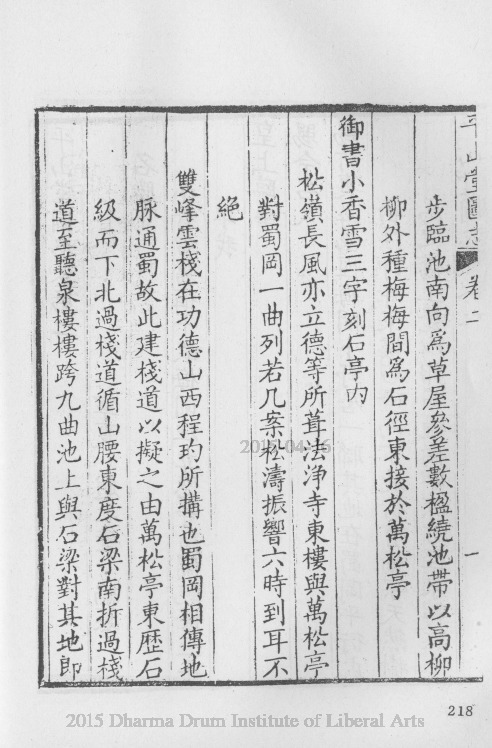 平山堂圖志 卷二 一
步臨池南向爲草屋參差數楹繞池帶以高柳
柳外種梅梅間爲石徑東接於萬松亭
御書小香雪三字刻石亭内
松嶺長風亦立德等所葺法浄寺東樓與萬松亭
對蜀岡一曲列若几案松濤振響六時到耳不
絶
雙峰雲棧在功德山西程玓所搆也蜀岡相傳地
脉通蜀故此建棧道以擬之由萬松亭東歴石
級而下北過棧道循山腰東度石梁南折過棧
道至聽泉樓樓跨九曲池上與石梁對其地即
2015-04-16
218
2015 Dharma Drum Institute of Liberal Arts